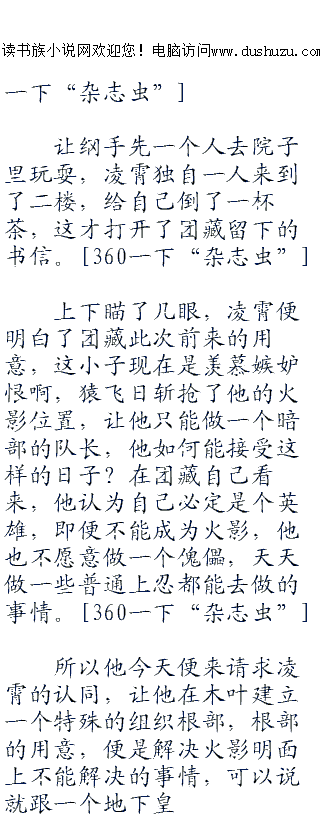 读书族小说网欢迎您！电脑访问www.dushuzu.com
一下“杂志虫”]
让纲手先一个人去院子
里玩耍，凌霄独自一人来到
了二楼，给自己倒了一杯
茶，这才打开了团藏留下的
书信。[360一下“杂志虫”]
上下瞄了几眼，凌霄便
明白了团藏此次前来的用
意，这小子现在是羡慕嫉妒
恨啊，猿飞日斩抢了他的火
影位置，让他只能做一个暗
部的队长，他如何能接受这
样的日子？在团藏自己看
来，他认为自己必定是个英
雄，即便不能成为火影，他
也不愿意做一个傀儡，天天
做一些普通上忍都能去做的
事情。[360一下“杂志虫”]
所以他今天便来请求凌
霄的认同，让他在木叶建立
一个特殊的组织根部，根部
的用意，便是解决火影明面
上不能解决的事情，可以说
就跟一个地下皇